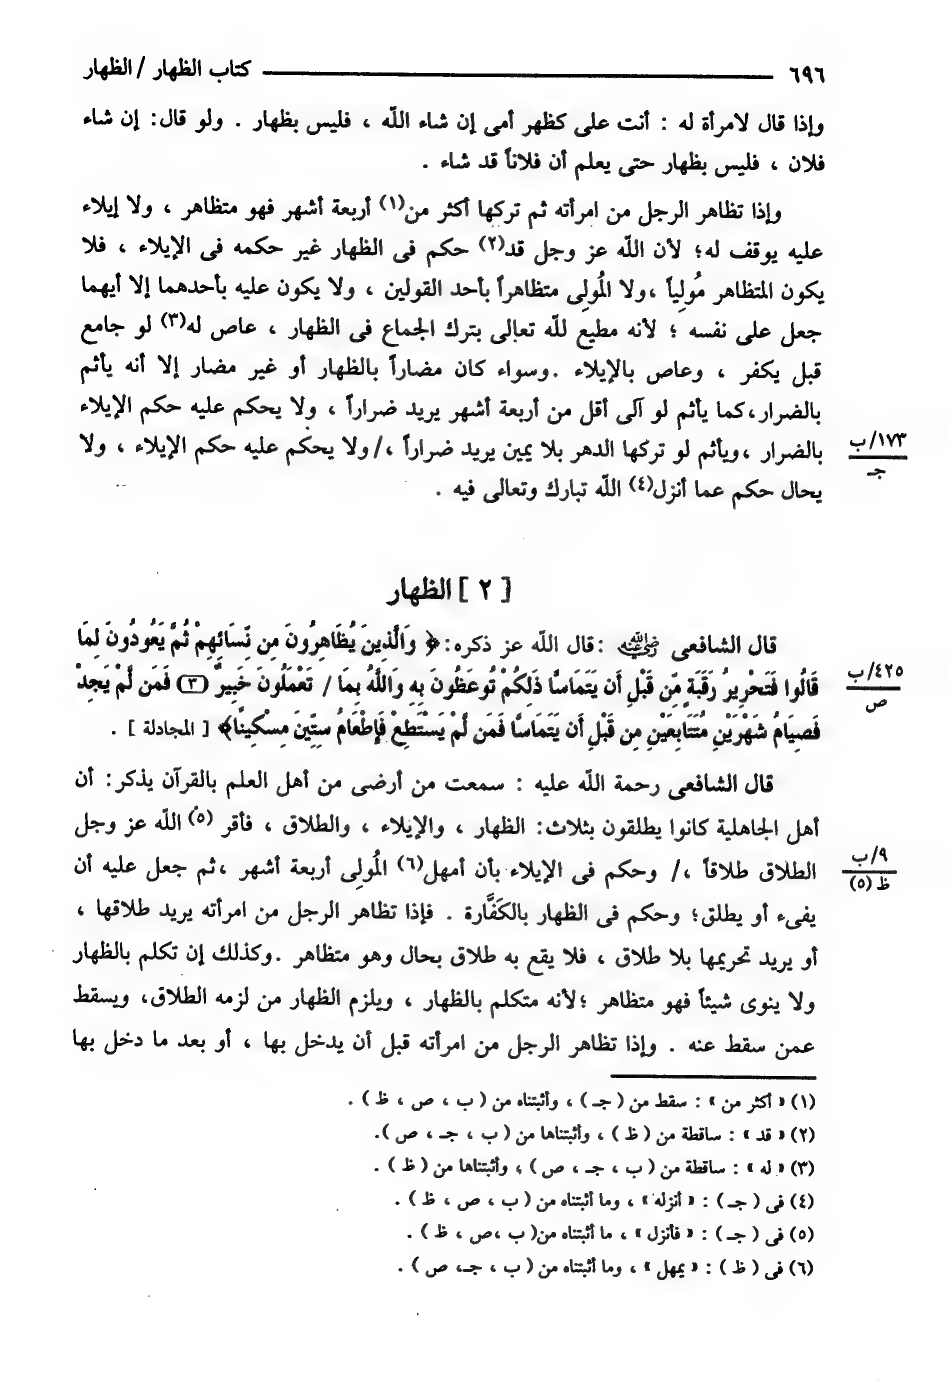 ٦٩٦ كتاب الظهار / الظهار
وإذا قال لامرأة له : أنت على كظهر أمى إن شاء اللّٰه ، فليس بظهار . ولو قال: إن شاء
فلان ، فليس بظهار حتى يعلم أن فلاناً قد شاء .
وإذا تظاهر الرجل من امرأته ثم تركها أكثر من(١) أربعة أشهر فهو متظاهر ، ولا إيلاء
عليه يوقف له؛ لأن اللّٰه عز وجل قد(٢) حكم فى الظهار غير حكمه فى الإيلاء ، فلا
يكون المتظاهر مُولِياً ،ولا المُولِى متظاهراً بأحد القولين ، ولا يكون عليه بأحدهما إلا أيهما
جعل على نفسه ؛ لأنه مطيع للّٰه تعالى بترك الجماع فى الظهار ، عاص له(٣) لو جامع
قبل يكفر ، وعاص بالإيلاء .وسواء كان مضاراً بالظهار أو غير مضار إلا أنه يأثم
بالضرار،كما يأثم لو آلى أقل من أربعة أشهر يريد ضراراً ، ولا يحكم عليه حكم الإيلاء
بالضرار ،ويأثم لو تركها الدهر بلا يمين يريد ضراراً ،/ولا يحكم عليه حكم الإيلاء ، ولا
١٧٣/ب
جـ
يحال حكم عما أنزل(٤) اللّٰه تبارك وتعالى فيه .
[ ٢ ] الظهار
قال الشافعى رضي الله عنه :قال اللّٰه عز ذكره:﴿ وَالَّذِينَ يُظَاهِرُونَ مِن نِّسَائِهِمْ ثُمَّ يَعُودُونَ لِمَا
قَالُوا فَتَحْرِيرُ رَقَبَةٍ مِّن قَبْلِ أَن يَتَمَاسَّا ذَلِكُمْ تُوعَظُونَ بِهِ وَاللَّهُ بِمَا / تَعْمَلُونَ خَبِيرٌ (٣) فَمَن لَّمْ يَجِدْ
٤٢٥/ب
ص
فَصِيَامُ شَهْرَيْنِ مُتَتَابِعَيْنِ مِن قَبْلِ أَن يَتَمَاسَّا فَمَن لَّمْ يَسْتَطِعْ فَإِطْعَامُ سِتِّينَ مِسْكِينًا﴾ [ المجادلة ] .
قال الشافعى رحمة اللّٰه عليه : سمعت من أرضى من أهل العلم بالقرآن يذكر: أن
أهل الجاهلية كانوا يطلقون بثلاث: الظهار ، والإيلاء ، والطلاق ، فأقر (٥) اللّٰه عز وجل
الطلاق طلاقاً ،/ وحكم فى الإيلاء بأن أمهل(٦) المُولِى أربعة أشهر ،ثم جعل عليه أن
٩/ب
ظ (٥)
يفىء أو يطلق؛ وحكم فى الظهار بالكَفَّارة . فإذا تظاهر الرجل من امرأته يريد طلاقها ،
أو يريد تحريمها بلا طلاق ، فلا يقع به طلاق بحال وهو متظاهر .وكذلك إن تكلم بالظهار
ولا ينوى شيئاً فهو متظاهر ؛لأنه متكلم بالظهار ، ويلزم الظهار من لزمه الطلاق، ويسقط
عمن سقط عنه . وإذا تظاهر الرجل من امرأته قبل أن يدخل بها ، أو بعد ما دخل بها
(١) « أكثر من » : سقط من ( جـ ) ، وأثبتناه من ( ب ، ص ، ظ ) .
(٢) « قد » : ساقطة من ( ظ ) ، وأثبتناها من ( ب ، جـ ، ص ).
(٣) « له » : ساقطة من ( ب ، جـ ، ص ) ، وأثبتناها من ( ظ ) .
(٤) فى ( جـ ) : « أنزله » ، وما أثبتناه من ( ب ، ص ، ظ ) .
(٥) فى ( جـ ) : « فأنزل » ، ما أثبتناه من( ب ،ص ، ظ ) .
(٦) فى ( ظ ) : « يمهل » ، وما أثبتناه من ( ب ، جـ، ص ) .